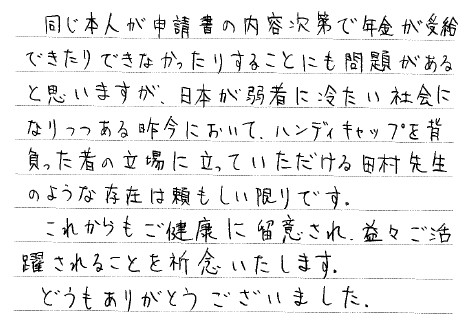 同じ本人が申請書の内容次第で年金が受給
できたりできなかったりすることにも問題がある
と思いますが、日本が弱者に冷たい社会に
なりつつある昨今において、ハンディキャップを背
負った者の立場に立っていただける田村先生
のような存在は頼もしい限りです.
これからもご健康に留意され、益々ご活
躍されることを祈念いたします.
どうもありがとうございました.